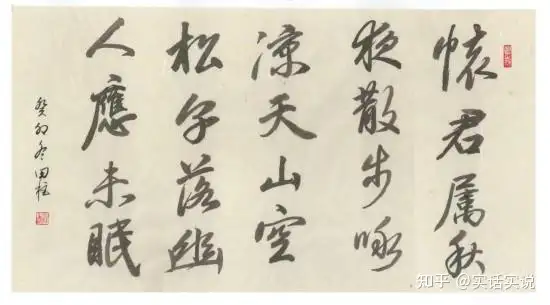 懷君屬秋
夜散步咏
涼天山空
松子落幽
人應未眠
癸卯冬田柱
知乎 @实话实说